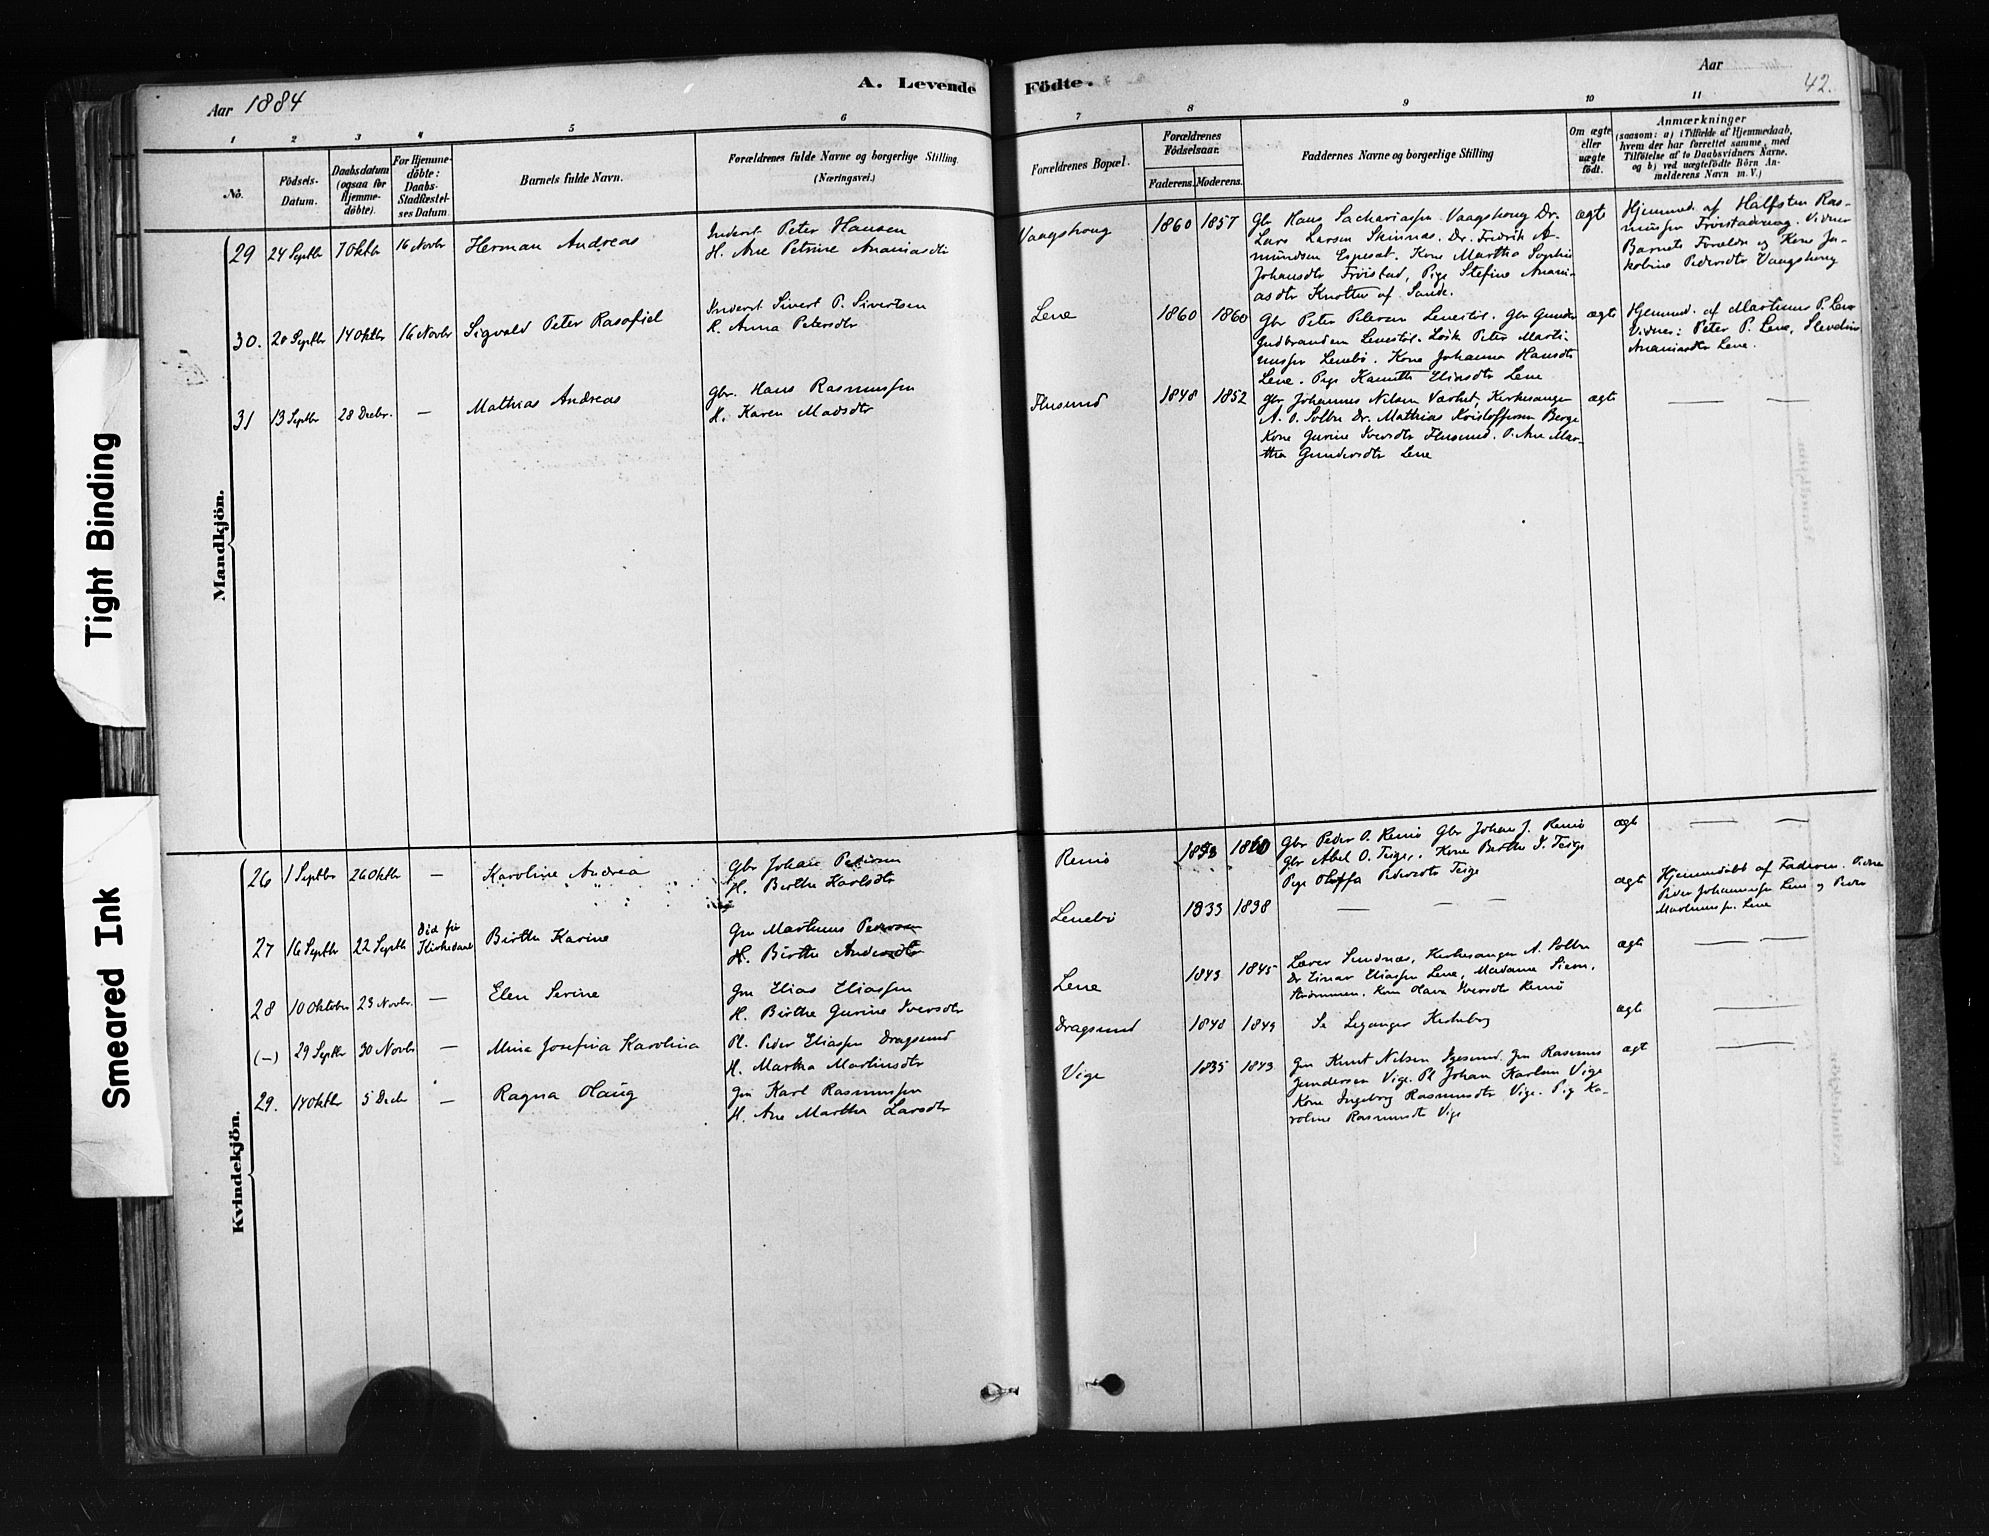 Aar 1884
A. Levende
Födte.
Aar
42.
1
2
3
4
5
6
7
8
9
10
11
No.
Födsels-
Datum.
Daabsdatum
(ogsaa for
Hjemme-
döbte).
For Hjemme-
döbte:
Daabs-
Stadfæstel-
ses Datum
Barnets fulde Navn.
Forældrenes fulde Navne og borgerlige Stilling
(Næringsvei.)
Forældrenes Bopæl.
Forældrenes
Födselsaar.
Faderens.
Moderens.
Faddernes Navne og borgerlige Stilling
Om ægte
eller
uægte
födt.
Anmærkninger
(saasom: a) i Tilfælde af Hjemmedaab,
hvem der har forrettet samme, med
Tilföielse af to Daabsvidners Navne,
og b) ved uægtefödte Börn An-
melderens Navn m. V.)
Mandkjön.
29 24 Septbr 7 Oktbr 16 Novbr Herman Andreas
Inderst Peter Hansen
H. Ane Petrine Ananiasdtr
Vaagshoug 1860 1857
Gbr Hans Sachariassen Vaagshoug Dr.
Lars Larsen Skinnes. Dr. Fredrik A-
mundsen Espesæt. Kone Martha Sophie
Johansdtr Fröistad, Pige Stefine Anani-
asdtr Knotten af Sande.
ægte
Hjemmd. af Halfsten Ras-
mussen Fröistadmog. Vidner
Barnets Forældre og Kone Ja-
kobine Pedersdtr Vaagshoug
30. 20 Septbr 14 Oktbr 16 Novbr Sigvald Peter Rasofiel
Inderst Sivert P. Sivertsen
K. Anna Petersdtr
Lene 1860 1860
Gbr Peter Petersen Lenestöl. Gbr Gunder
Gudbrandsen Lenestöl. Lösk Peter Marti-
nussen Lenebö. Kone Johanna Hansdtr
Lene. Pige Kanutte Eliasdtr Lene
ægte
Hjemmd. af Martinus P. Lene
Vidner: Peter P. Lene,
Ananiasdtr Lene.
31 13 Septbr 28 Decbr. — Mathias Andreas
Gbr. Hans Rasmussen
H. Karen Madsdtr
Flusund 1848 1852
Gbr Johannes Nilsen Kirkesanger
A. O. Solbr Dr. Mathias Kristoffersen Berge
Kone Gurine Iversdtr Flusund. P. Ane Mar-
tha Gundersdtr Lene
ægte — —
Kvindekjön.
26 1 Septbr 26 Oktbr — Karoline Andrea
Gbr Johan Petersen
H. Birthe Karlsdtr
Remö 1853 1860
Gbr Peder O. Remö Gbr Johan J. Remö
Gbr Abel O. Teige, Kone Berthe I. Teige
Pige Oluffa Pedersdtr Teige
ægte — —
27 16 Septbr 22 Septbr Död för Kirkedaab Birthe Karine
Gm Martinus Pedersen
H. Birthe Andersdtr
Lenebö 1833 1838 — — —
ægte
Hjemmedöbt af Faderen. Vidner
Peder Johannessen Lene og Peder
Martinussen Lene
28 10 Oktober 23 Novbr. — Elen Serine
Gm Elias Eliassen
H. Birthe Gurine Iversdtr
Lene 1843 1845
Lærer Sundnæs, Kirkesanger A. Solbr
Dr Einar Eliassen Lene, Madame Siem,
Strömmen, Kone Olava Iversdtr Remö
ægte — —
(—) 29 Septbr 30 Novbr — Mina Josefina Karolina
Pl. Peder Eliassen Dragsund
H. Martha Martinsdtr
Dragsund 1848 1849
Se Leganger Kirkebog
ægte —
29. 14 Oktbr 5 Decbr — Ragna Olaug
Gm Karl Rasmussen
H. Ane Martha Larsdtr
Vige 1835 1843
Gm Knut Nilsen Igesund. Gm Rasmus
Gundersen Vige. Pl Johan Karlsen Vige
Kone Ingeborg Rasmusdtr Vige. Pig Ka-
roline Rasmusdtr Vige
ægt —
Tight Binding
Smeared Ink